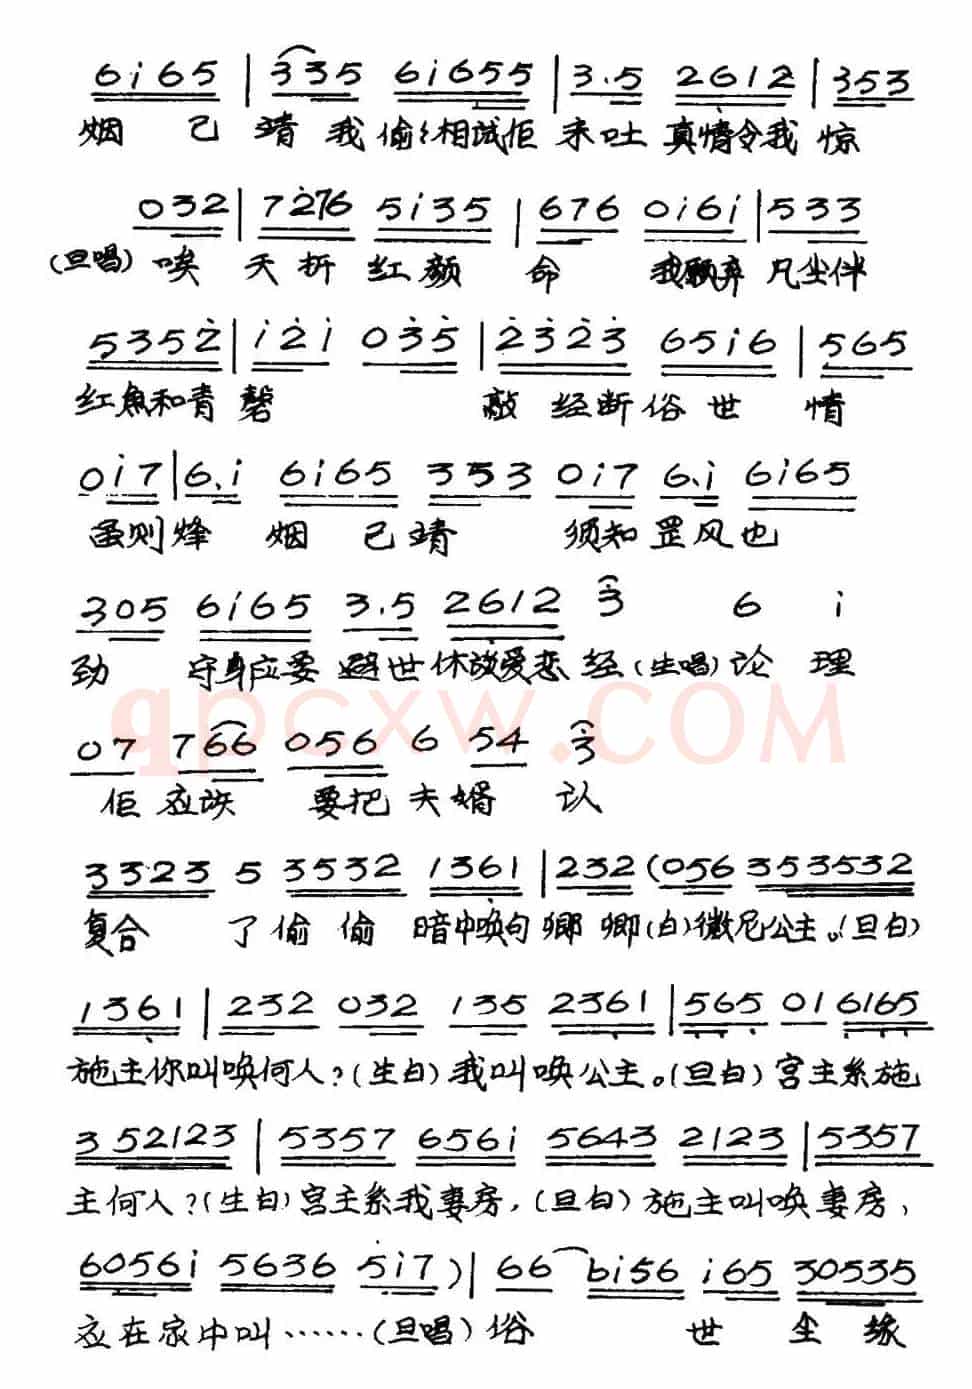 6i65 | 335 6i655 | 3.5 2612 | 353
烟 已 靖 我 偷々相试佢 未吐 真情令我 惊
032 | 7276 5i35 | 676 0i6i | 533
(旦唱) 唉 夭折 红颜 命 我愿弃 凡尘伴
5352 | i2i 035 | 2323 65i6 | 565
红魚和青磬 敲 经断俗世 情
0i7 | 6.i 6i65 353 0i7 6.i 6i65
虽则烽 烟 已靖 须知罡风也
305 6i65 3.5 2612 3 6 i
劲 守身应要 避世休谈爱恋 经(生唱)论 理
07 766 056 6 54 3
佢应该 要把 夫婿 认
3323 5 3532 1361 | 232 (056 353532
复合 了偷 偷 暗中唤句卿 卿(白)徽妮公主。(旦白)
1361 | 232 032 135 2361 | 565 01 6165
施主你叫唤何人?(生白)我叫唤公主。(旦白)宫主系施
352123 | 5357 656i 5643 2123 | 5357
主何人?(生白)宫主系我妻房,(旦白)施主叫唤妻房,
6056i 5636 5i7 ) | 66 6i56 i65 30535
应在家中叫……(旦唱)俗 世 尘 缘
qpcxw.COM